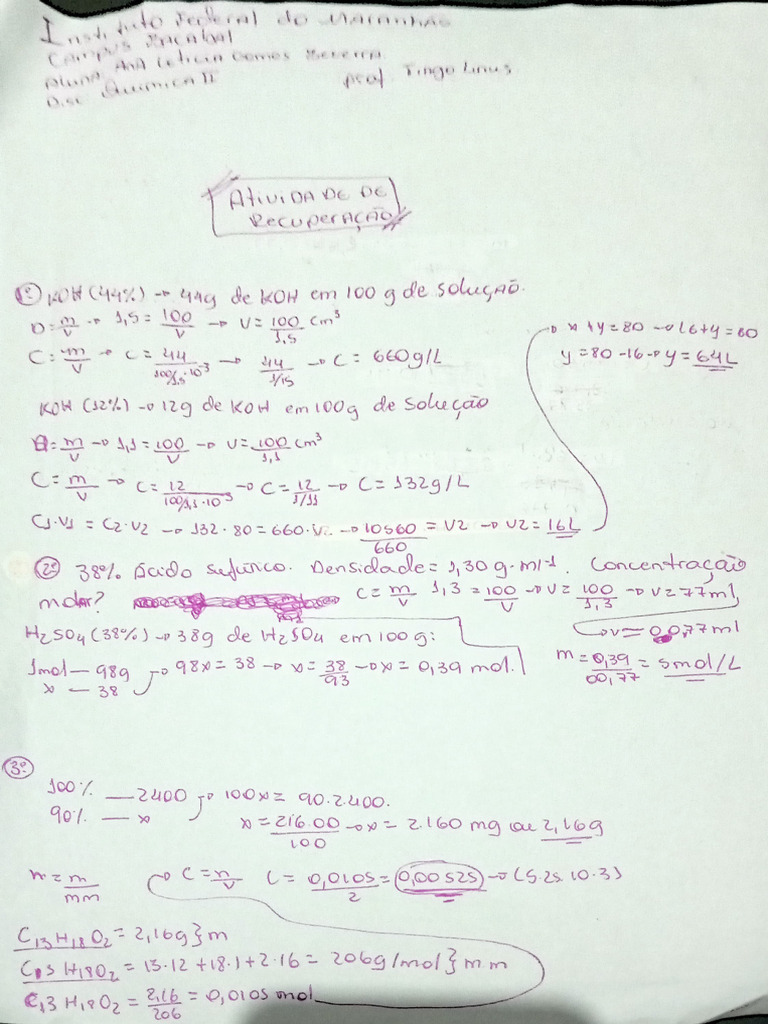 Instituto Federal do Maranhão
Campus Bacabal
Aluna: Ana Leticia Gomes Bezerra
Disc Química II Prof Tiago Linus
Atividade de
Recuperação
1º KOH (44%) → 44g de KOH em 100 g de solução.
D = m/v → 1,5 = 100/v → V = 100/1,5 cm³
C = m/v → C = 44/100/1,5·10⁻³ → 44/1/15 → C = 660g/L
KOH (12%) → 12g de KOH em 100g de solução
D = m/v → 1,1 = 100/v → V = 100/1,1 cm³
C = m/v → C = 12/100/1,1·10⁻³ → C = 12/1/11 → C = 132g/L
C1·V1 = C2·V2 → 132·80 = 660·V2 → 10560/660 = V2 → V2 = 16L
x + y = 80 → 16 + y = 80
y = 80 - 16 → y = 64L
2º 38% ácido sufúrico. Densidade = 1,30 g·ml⁻¹. Concentração
molar? C = m/v 1,3 = 100/v → V = 100/1,3 → V = 77ml
→ V = 0,077ml
H2SO4 (38%) → 38g de H2SO4 em 100g:
1mol — 98g → 98x = 38 → x = 38/93 → x = 0,39 mol.
x — 38
m = 0,39/00,77 = 5mol/L
3º
100% — 2400 → 100x = 90.2.400.
90% — x
x = 216.00/100 → x = 2.160 mg ou 2,16g
n = m/mm → C = n/v C = 0,0105/2 = 0,00525 → (5.25.10-3)
C13H18O2 = 2,16g } m
C13H18O2 = 13·12 + 18·1 + 2·16 = 206g/mol } m.m
C13H18O2 = 2,16/206 = 0,0105 mol